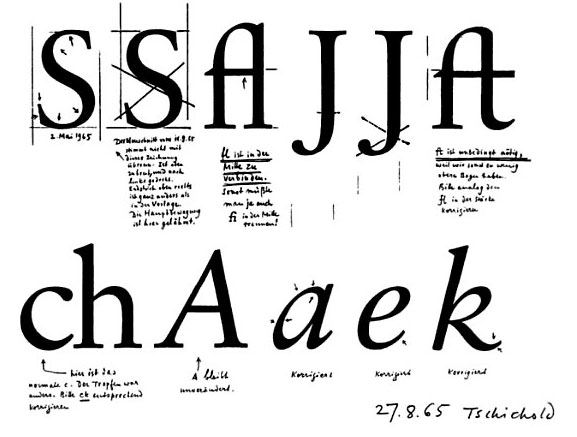 S S fl J J ft
2. Mai 1965
Der Umschnitt vom 11.8.65
stimmt nicht mit
dieser Zeichnung
überein. Ist oben
nach
links gedreht.
Endstrich oben rechts
ist ganz anders als
in der Vorlage.
Die Hauptbewegung
ist hier gelähmt.
fl ist in der
Mitte zu
verbinden.
Sonst müßte
man ja auch
fi in der Mitte
trennen!
ft ist unbedingt nötig,
weil wir sonst zu wenig
obere Bogen haben.
Bitte analog dem
fl in der Stärke
korrigieren
ch A a e k
hier ist das
normale c. Der Tropfen war
anders. Bitte ck entsprechend
korrigieren
A bleibt
unverändert.
Korrigiert
Korrigiert
Korrigiert
27.8.65 Tschichold